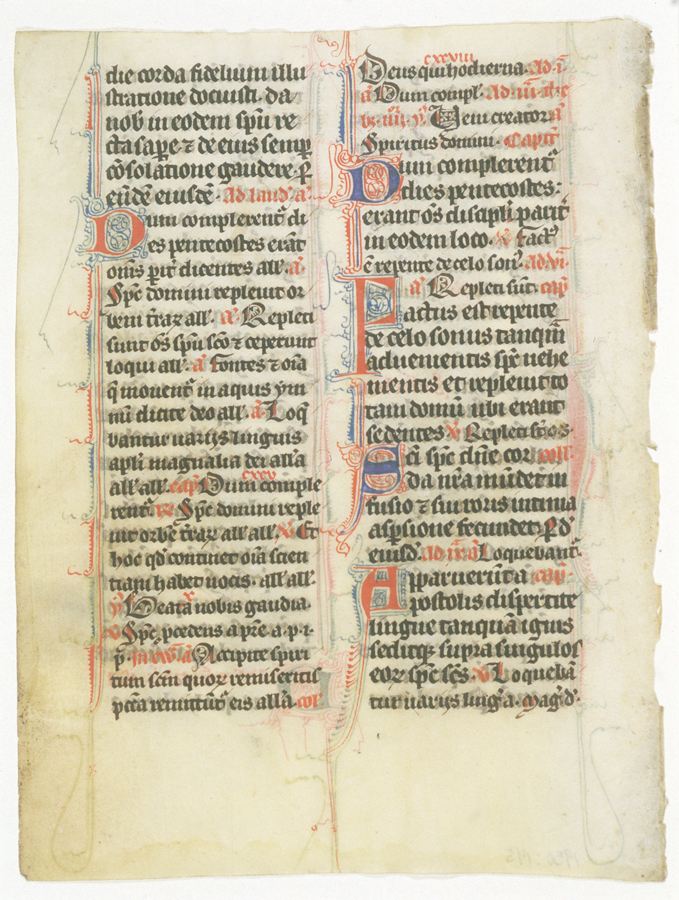 die corda fidelium illu
stratione docuisti. da
nob in eodem spu re
cta sape ⁊ de eius semp
cōsolatione gaudere. P
eūdē eiusdē. Ad laud. a.
Dum complerent di
es pentecostes erāt
om̄s pit dicentes all'. a.
Sp̄c domini repleuit or
bem t̄raꝝ all'. a. Repleti
sunt oēs spū scō ⁊ ceperunt
loqui all'. a. fontes ⁊ oīa
q̄ mouent in aquis ymn
nū dicite deo all'. a. Loq̄
bantur uarijs linguis
apl'i magnalia dei all'a
all' all'. cap. cxxv Dum comple
rent. Sp̄c domini reple
uit orbē t̄raꝝ all' all'. V Et
hoc qd continet oīa scien
tiam habet uocis. all' all'.
V Beata nobis gaudia.
V Sp̄c pcedens a p̄re. a. p. i.
p̄. a Accipite spiri
tum scm quoꝝ remiseritis
pcca remittūt eis all'a. cor
cxxviii
Deus qui hodierna. Ad. i.
a Dum compl. Ad. iii. a.
Veni creator a
Spiritus domini. Capit
Dum complerent
dies pentecostes:
erant oēs discipl'i parit
in eodem loco. V Fact
ē repente de celo son. Ad. vi.
a Repleti sūt. cap
Factus est repente
de celo sonus tanquā
aduenientis sp̄c uehe
mentis et repleuit to
tam domū ubi erant
sedentes V Repleti st oēs.
Sci sp̄c dn̄e cor coll.
da nr̄a mūdet in
fusio ⁊ sui roris intima
aspsione fecundet. P d
eiusd. Ad a Loquebant.
Apparuerūt a cap.
postolis dispertite
lingue tanquā ignis
seditqꝫ supra singulos
eoꝝ sp̄c scs. V Loquebā
tur uarijs ling. a. Mag. d.